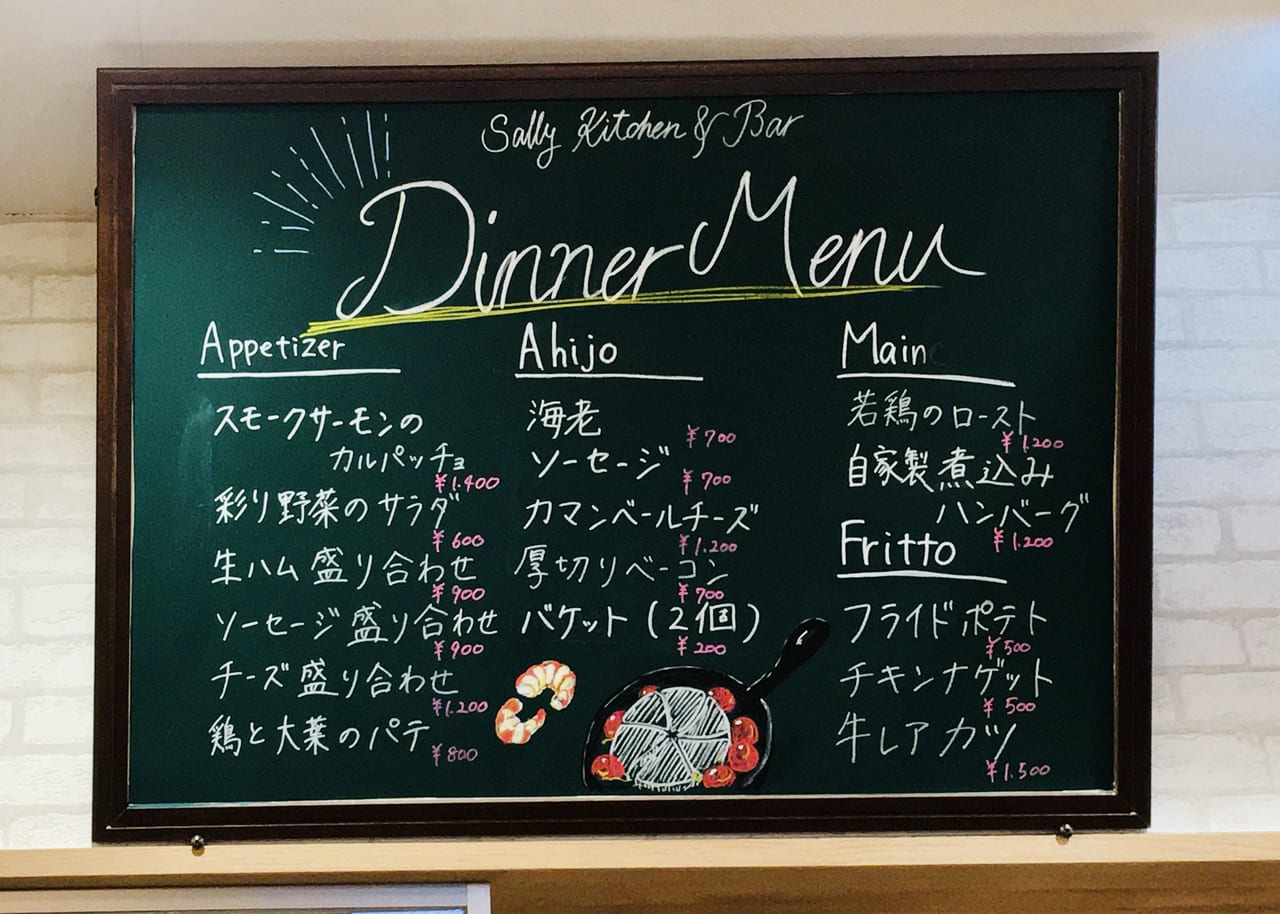 Sally Kitchen & Bar
Dinner Menu
Appetizer
スモークサーモンの
カルパッチョ
¥1.400
彩り野菜のサラダ
¥600
生ハム盛り合わせ
¥900
ソーセージ盛り合わせ
¥900
チーズ盛り合わせ
¥1.200
鶏と大葉のパテ
¥800
Ahijo
海老
¥700
ソーセージ
¥700
カマンベールチーズ
¥1.200
厚切りベーコン
¥700
バケット(2個)
¥200
Main
若鶏のロースト
¥1.200
自家製煮込み
ハンバーグ
¥1.200
Fritto
フライドポテト
¥500
チキンナゲット
¥500
牛レアカツ
¥1.500